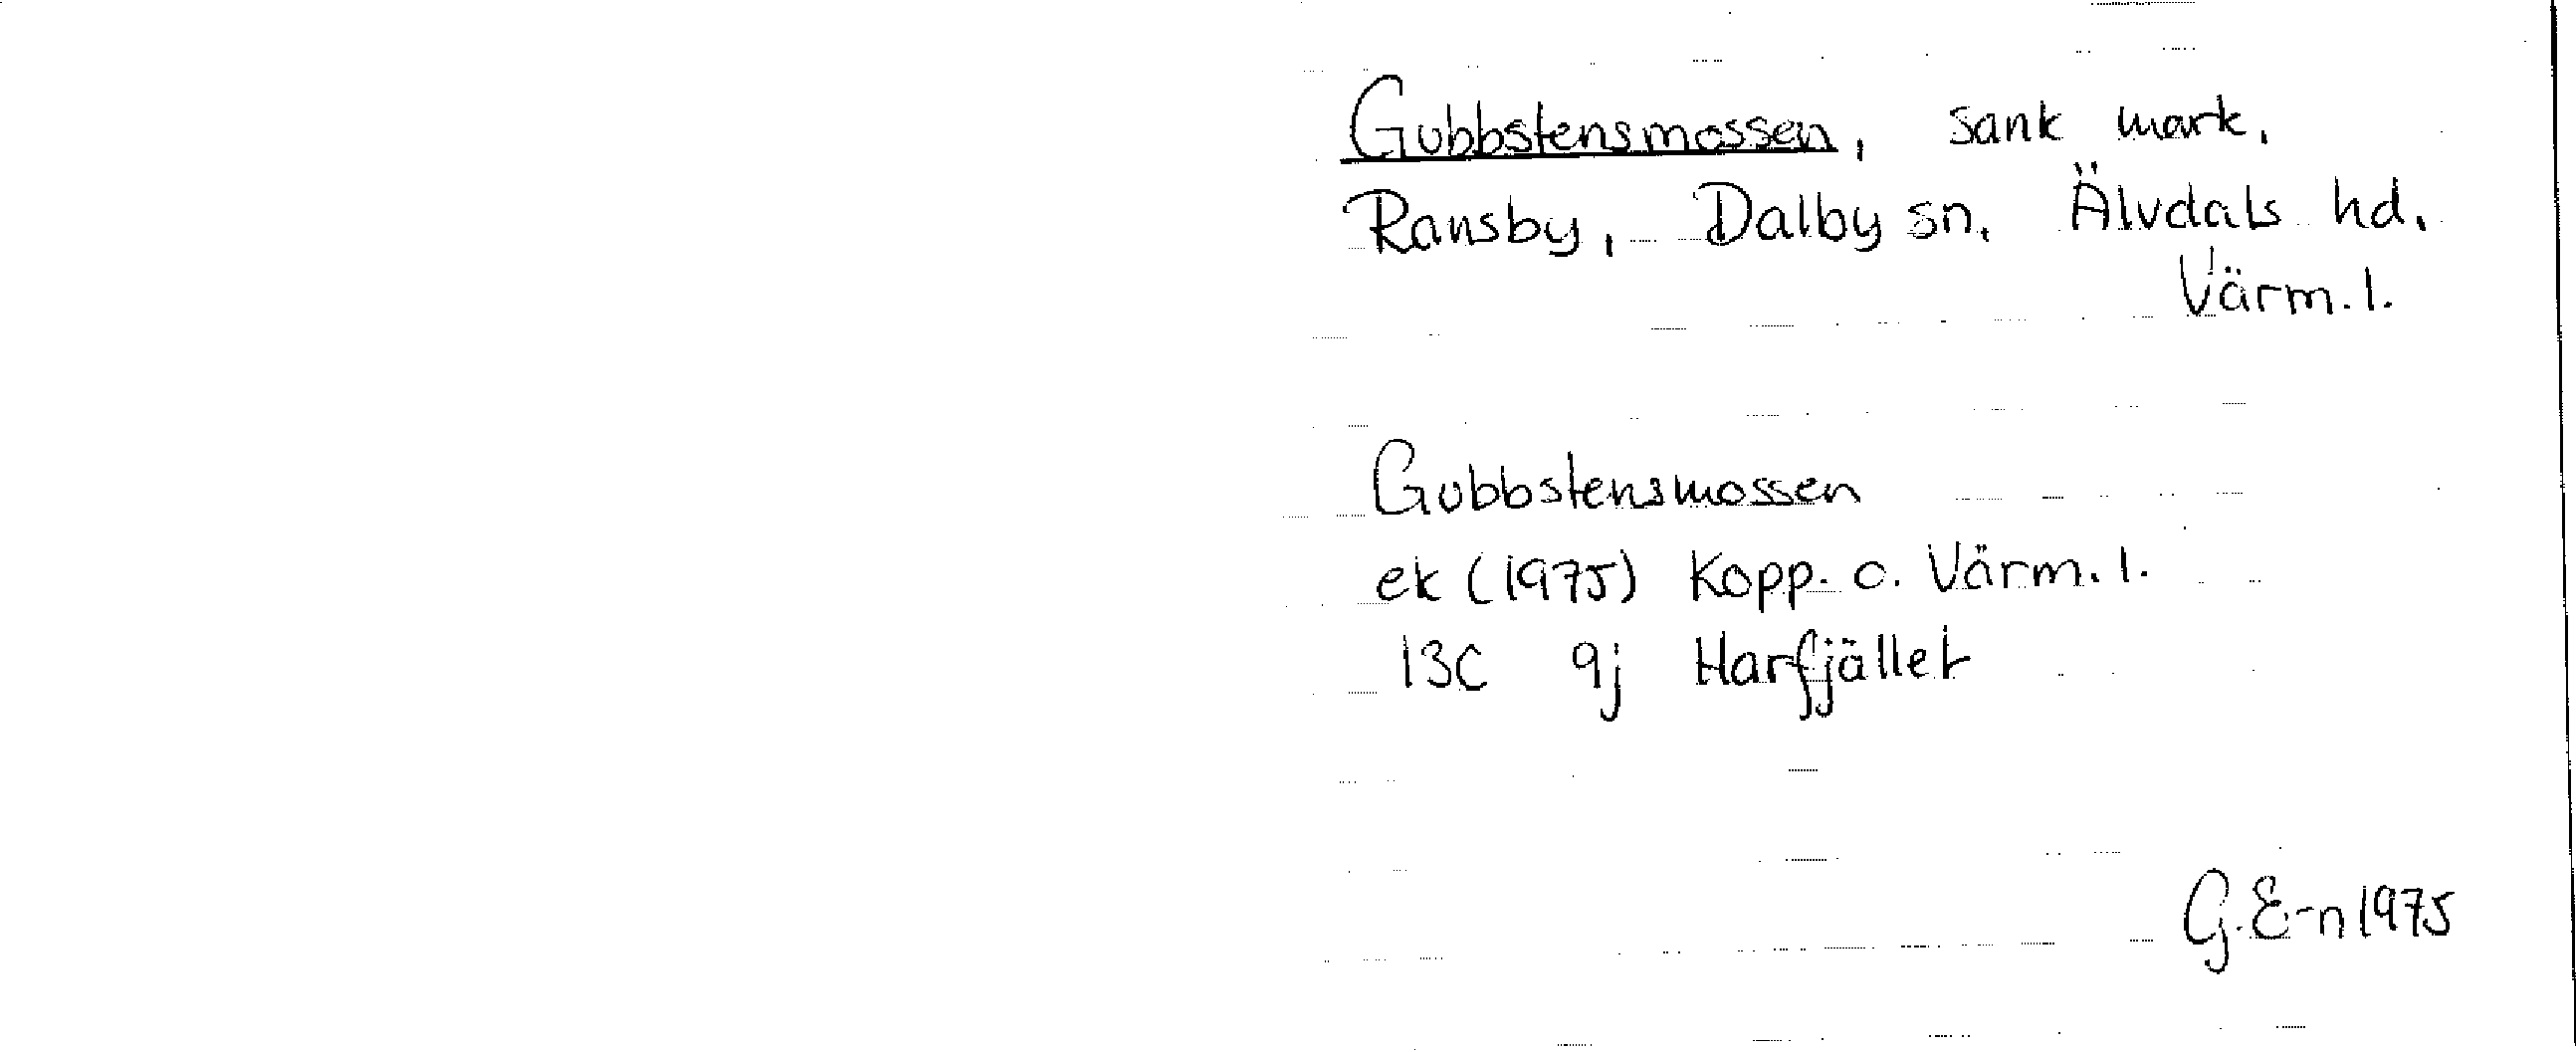 Gubbstensmossen, sank mark.
Ransby, Dalby sn. Älvdals hd.
Värm. l.
Gubbstensmossen
ek (1975) Kopp. o. Värm. l.
13C 9j Harfjället
G. E-n 1975